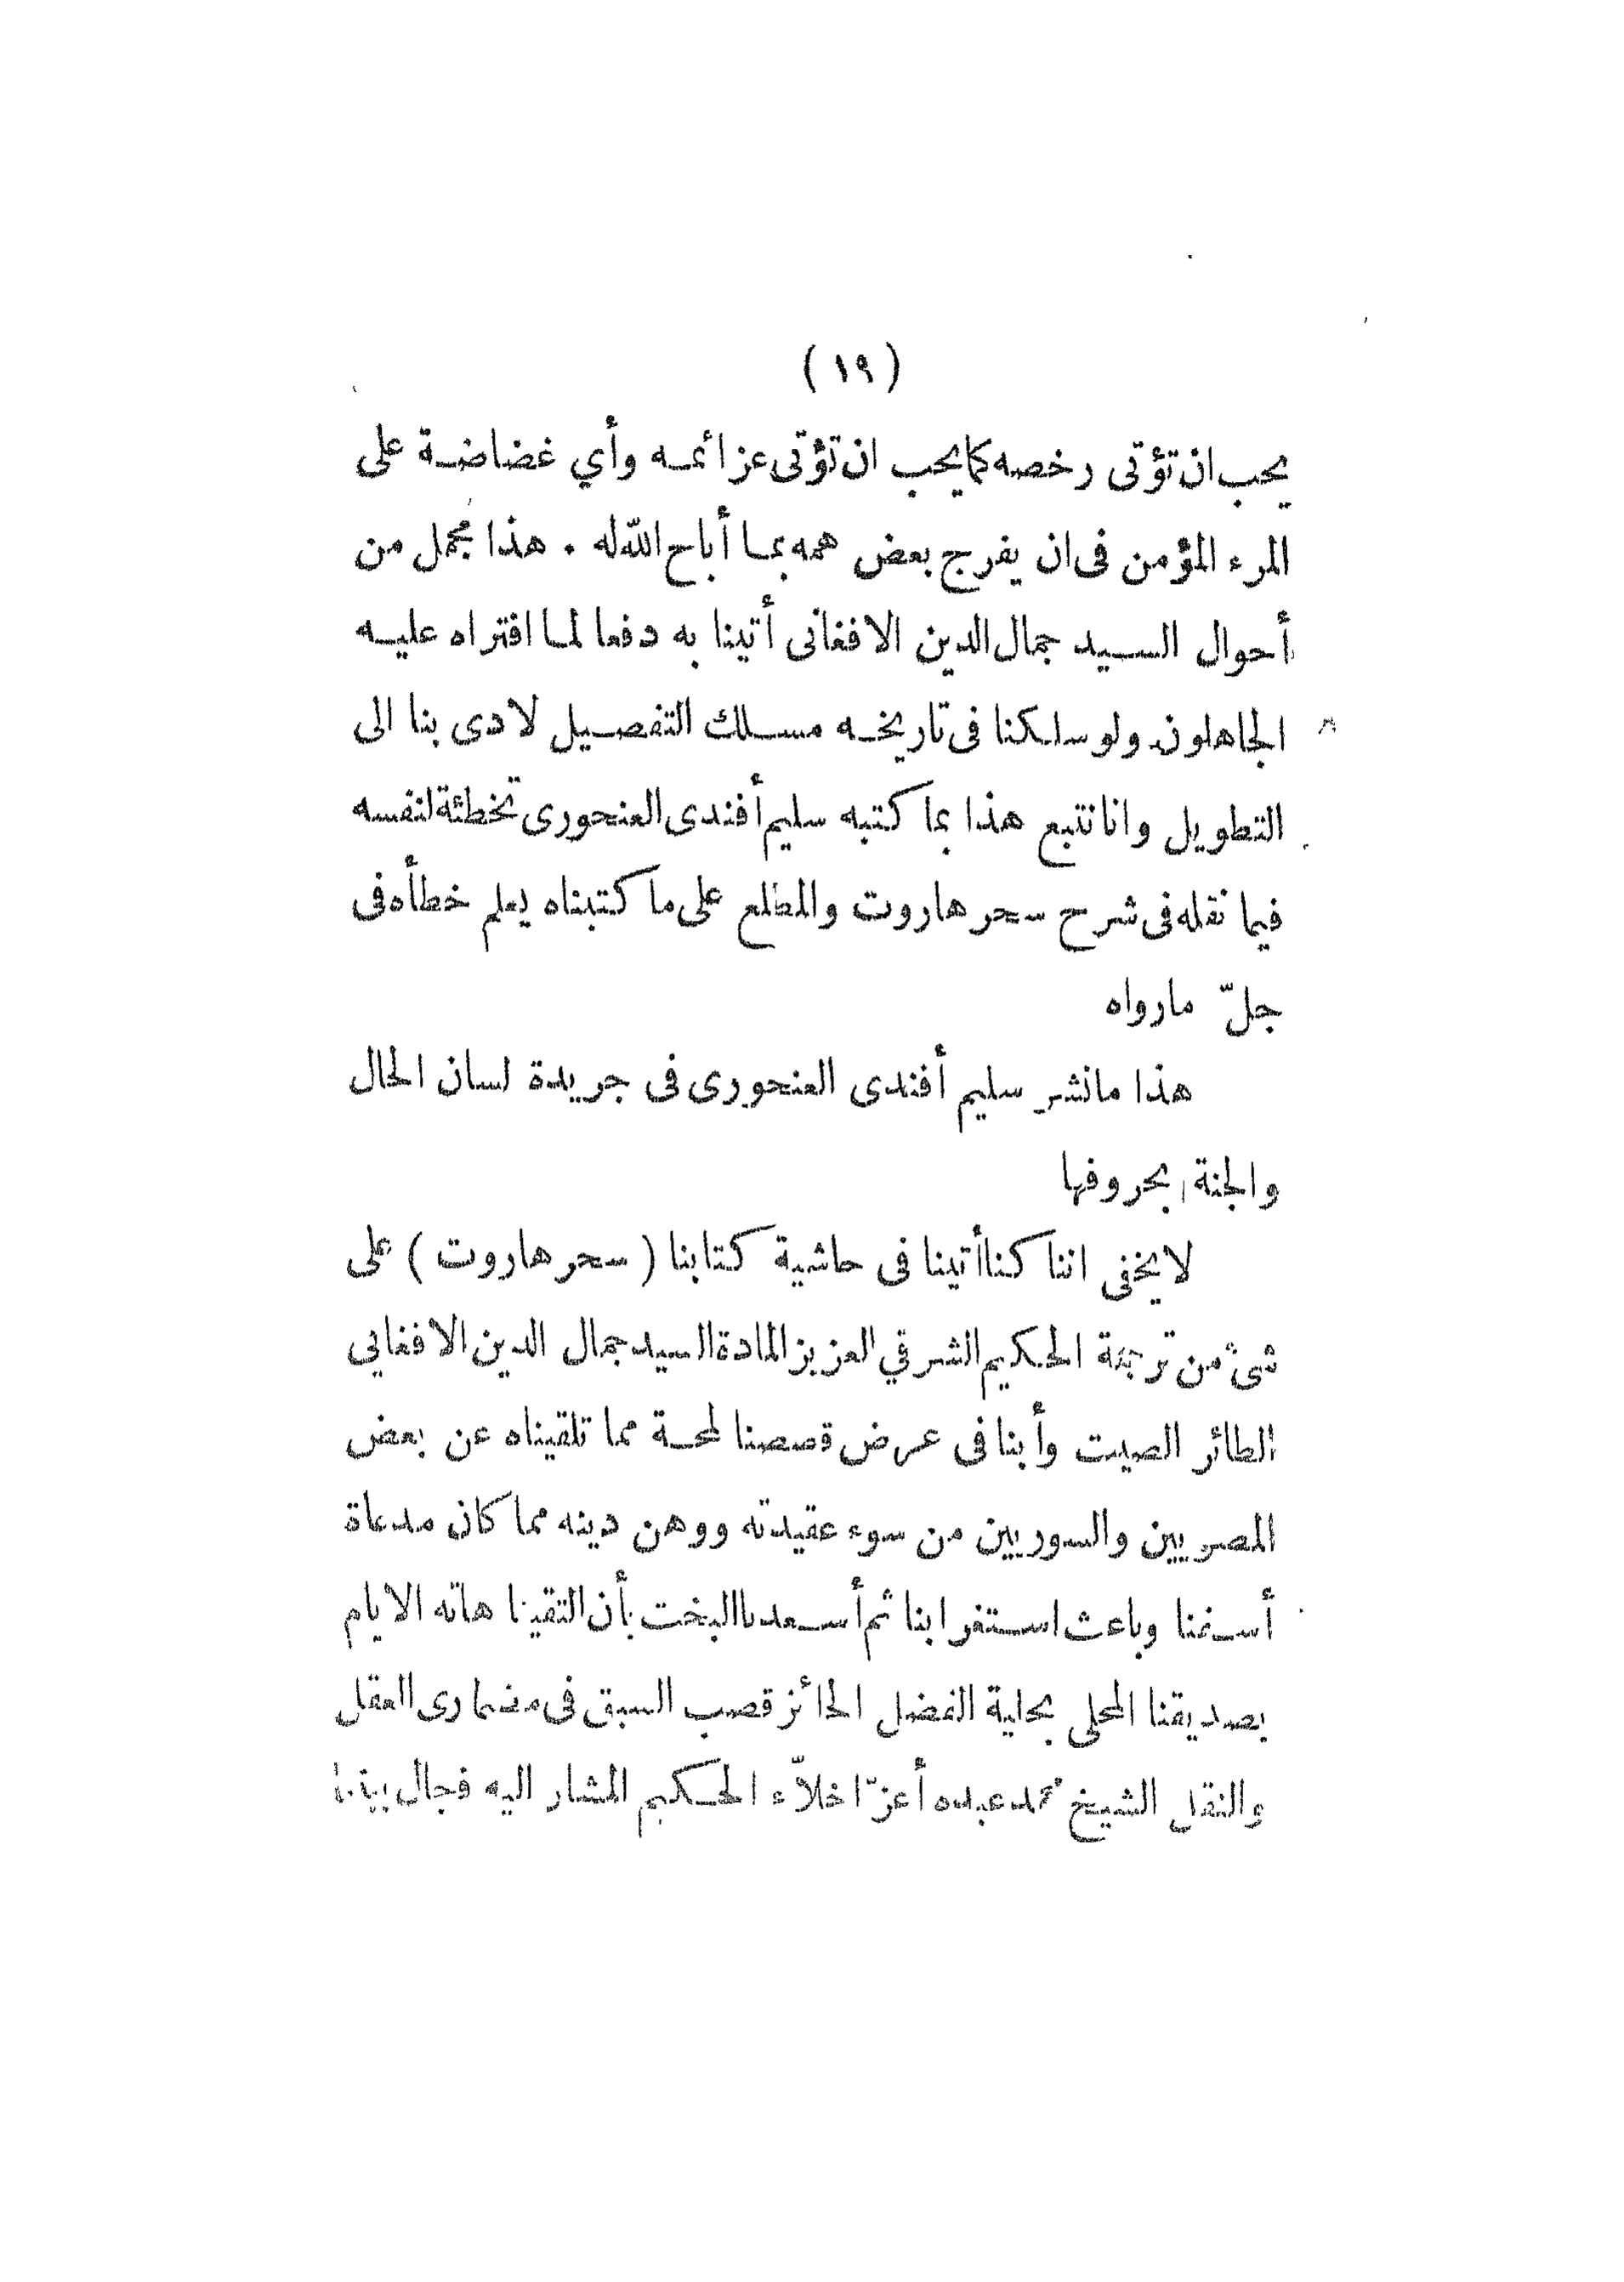 (١٩)
يحب ان تؤتى رخصه كما يحب ان تؤتى عزائمه وأي غضاضة على
المرء المؤمن فى ان يفرج بعض همه بما أباح الله له . هذا مجمل من
أحوال السيد جمال الدين الافغانى أتينا به دفعا لما افتراه عليه
الجاهلون ولو سلكنا فى تاريخه مسلك التفصيل لادى بنا الى
التطويل وانا نتبع هذا بما كتبه سليم أفندى العنحورى تخطئة لنفسه
فيما نقله فى شرح سحر هاروت والمطلع على ما كتبناه يعلم خطأه فى
جلّ مارواه
هذا مانشر سليم أفندى العنحورى فى جريدة لسان الحال
والجنة بحروفها
لايخفى اننا كنا أتينا فى حاشية كتابنا ( سحر هاروت ) على
شئ من ترجمة الحكيم الشرقي العزيز المادة السيد جمال الدين الافغاني
الطائر الصيت وأبنا فى عرض قصصنا لمحة مما تلقيناه عن بعض
المصريين والسوريين من سوء عقيدته ووهن دينه مما كان مدعاة
أسفنا وباعث استغرابنا ثم أسعدنا البخت بأن التقينا هاته الايام
بصديقنا المحلى بحلية الفضل الحائز قصب السبق فى مضمارى العقل
والنقل الشيخ محمد عبده أعزّ اخلاّء الحكيم المشار اليه فجال بيننا